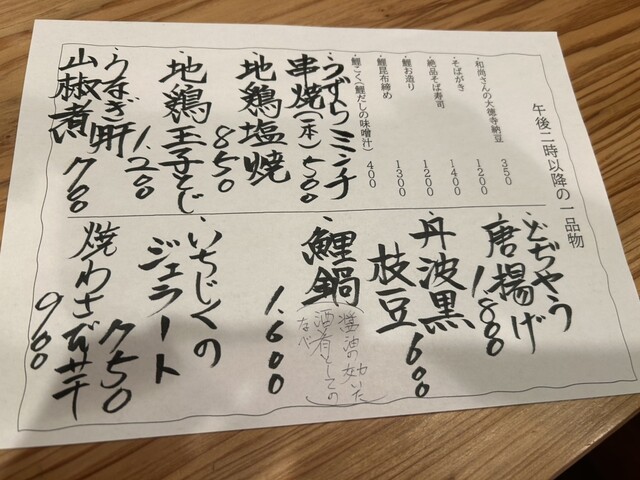 午後二時以降の一品物
・和尚さんの大徳寺納豆 350
・そばがき 1200
・絶品そば寿司 1400
・鯉お造り 1200
鯉昆布締め 1300
鯉こく(鯉だしの味噌汁) 400
・うずらミンチ
串焼(一本)500
地鶏塩焼
850
地鶏玉子とじ
1.200
・うなぎ肝
山椒煮 700
・どぢやう
唐揚げ
1.800
・丹波黒
枝豆 600
・鯉鍋(醤油の効いた
酒肴としての
なべ)
1.600
・いちじくの
ジェラート
750
焼わさび芋
900